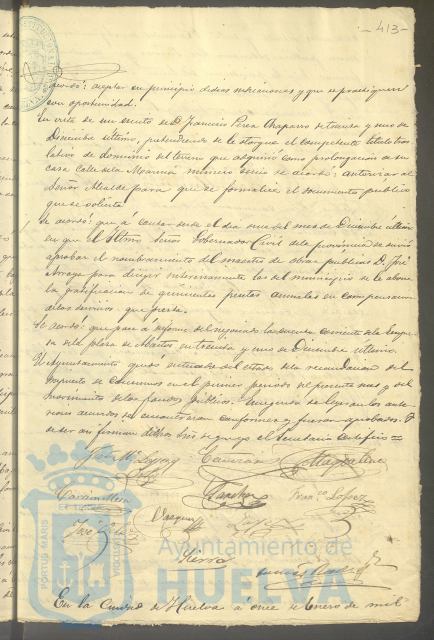 413
acordó: aceptar en principio dichas indicaciones y que se practiquen
con oportunidad.
En vista de un escrito de D. Francisco Perea Chaparro de treinta y uno de
Diciembre último, pretendiendo se le otorgue el competente título tras
lativo de dominio del terreno que adquirió como prolongación a su
casa calle de la número se acordó: autorizar al
Señor Alcalde para que se formalice el documento público
que se solicita.
Se acordó: que á contar desde el día nueve del mes de Diciembre último
en que el Iltmo Señor Gobernador Civil de la provincia se sirvió
aprobar el nombramiento del maestro de obras públicas D. José
Arroyo para dirigir interinamente las del municipio se le abone
la gratificación de quinientas pesetas anuales en compensación
de los servicios que presta.
Se acordó: que pase á informe del negociado la cuenta corriente de la
del plaza de Abastos en treinta y uno de Diciembre último.
El Ayuntamiento quedó enterado del estado de la recaudación del
impuesto de consumos en el primer periodo del presente mes y del
movimiento de los fondos públicos.
acuerdos se encontraron conformes y fueron aprobados. Y
de ser así firman dichos Sres de que yo el Secretario certifico =
García
Sanchez
Franco Lopez
José
Vazquez
PORTUS MARIS
Ayuntamiento de
HUELVA
En la Ciudad de Huelva á once de Enero de mil